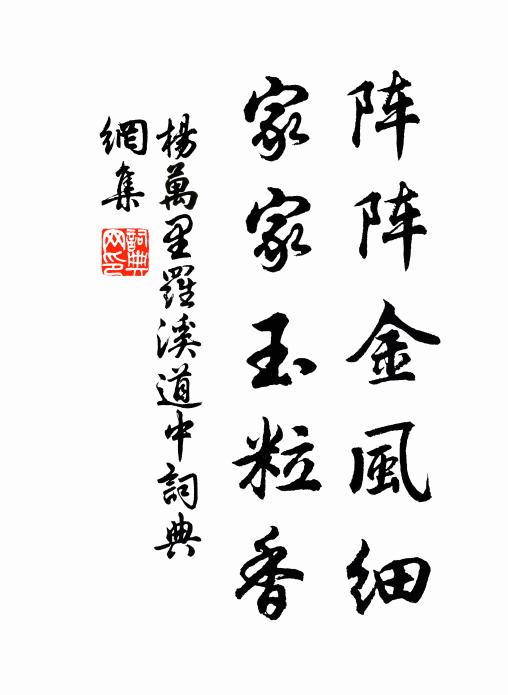 阵阵金風细
家家玉粒香
楊萬里羅溪道中詞典
網集
詞典
网印